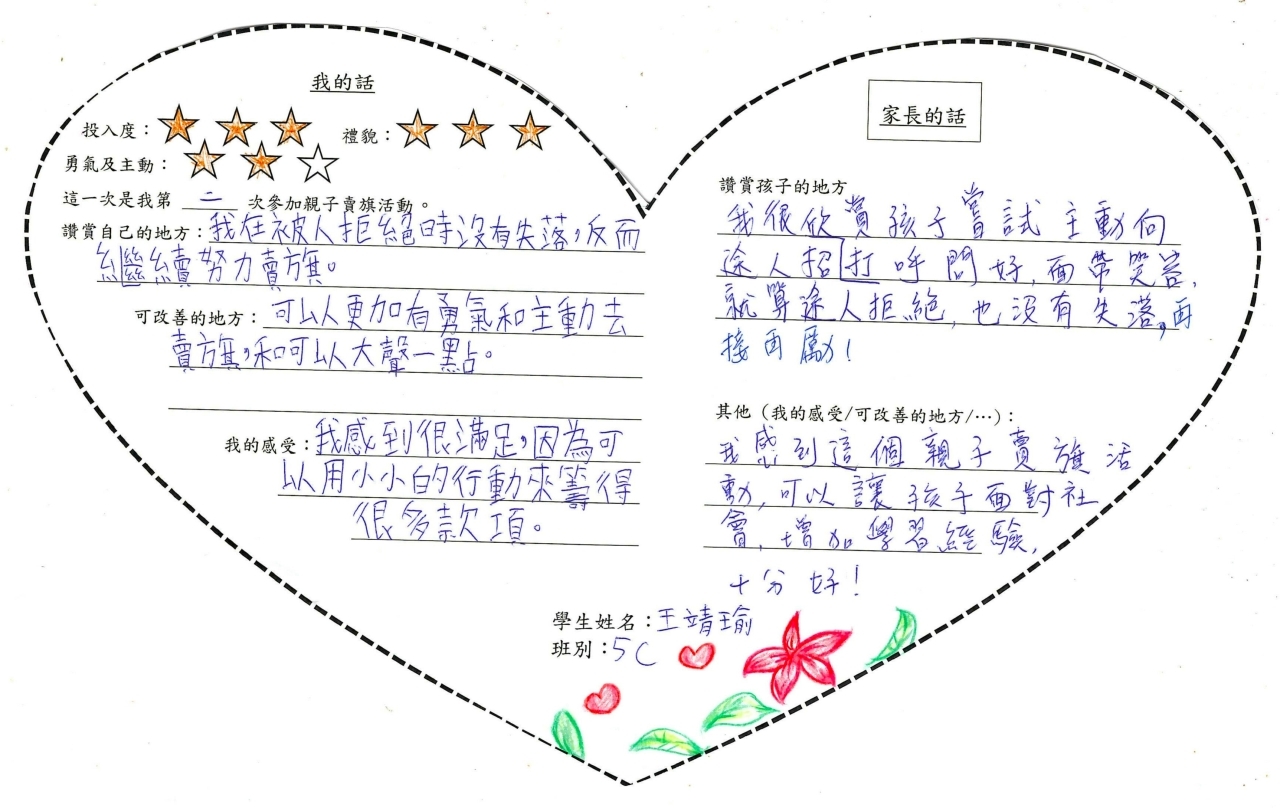 我的話
投入度：
禮貌：
勇氣及主動：
這一次是我第 二 次參加親子賣旗活動。
讚賞自己的地方：我在被人拒絕時沒有失落，反而
繼續努力賣旗。
可改善的地方：可以更加有勇氣和主動去
賣旗，和可以大聲一點。
我的感受：我感到很滿足，因為可
以用小小的行動來籌得
很多款項。
家長的話
讚賞孩子的地方
我很欣賞孩子嘗試主動向
途人招打呼問好，面帶笑容，
就算途人拒絕，也沒有失落，再
接再勵！
其他（我的感受/可改善的地方/…）：
我感到這個親子賣旗活
動，可以讓孩子面對社
會，增加學習經驗，
十分好！
學生姓名：王靖瑜
班別：5C